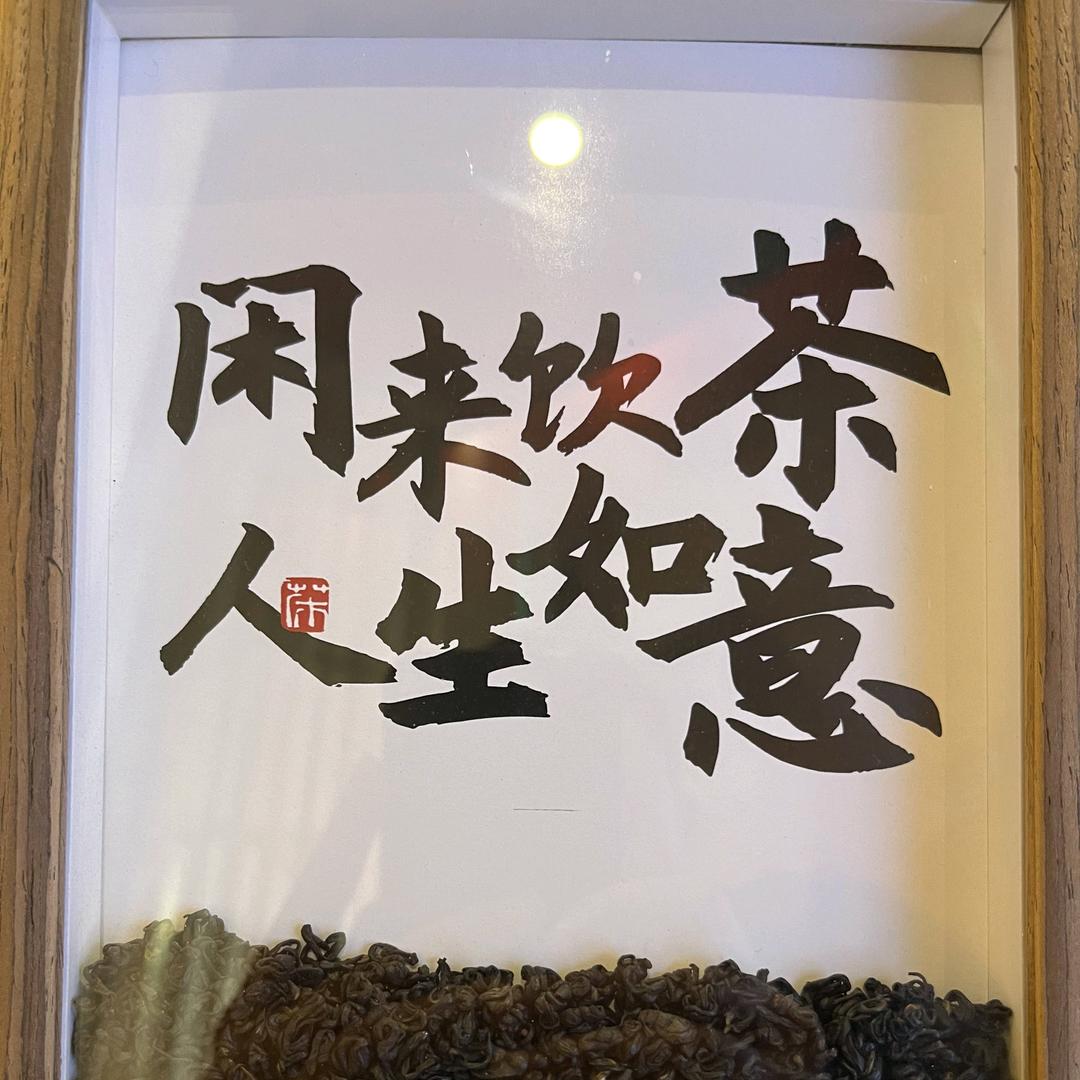 闲来饮茶
人生如意
茶